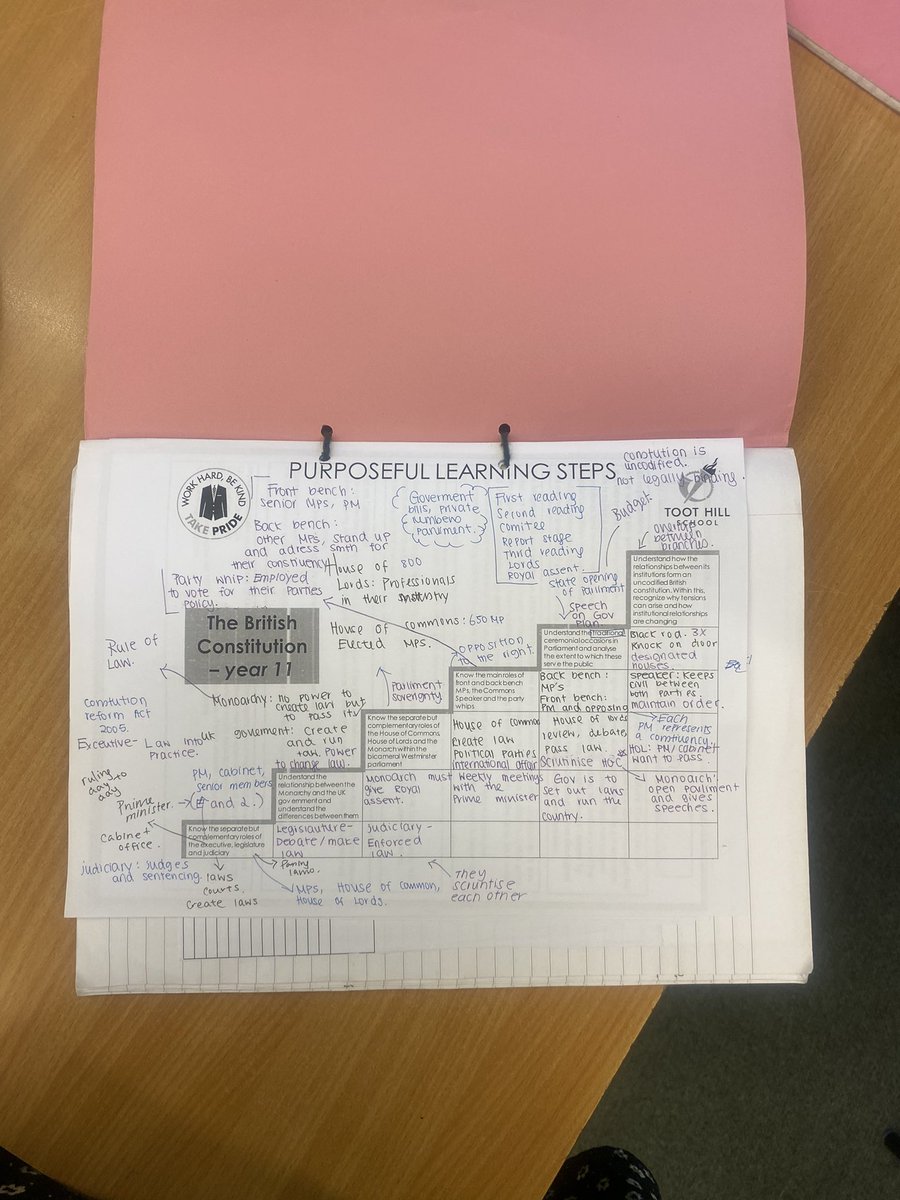 PURPOSEFUL LEARNING STEPS
WORK HARD, BE KIND
TAKE PRIDE
constution is
uncodified.
not legally binding.
TOOT HILL
SCHOOL
Front bench:
Senior MPs, PM
Back bench:
other MPs, stand up
and adress smth for
their constuency
Party whip: Employed
to vote for their Parties
Policy.
Goverment
bills, private
Parliment.
First reading
Second reading
Comitee
Report stage
Third reading
Lords
Royal assent.
Budget.
overlap
between
branches.
House of 800
Lords: Professionals
in their
House of commons: 650 MP
Elected MPs.
state opening
of Parliment
speech
on Gov
Plan.
opposition
to the right.
The British
Constitution
– year 11
Rule of
Law.
Monoarchy: no power to
create law but
to pass it.
Parliment
sovereignty
constution
reform Act
2005.
Excecutive- Law into
Practice.
UK goverment: Create
and run
law. Power
to change law.
ruling
day to
day
Prime
minister.
PM, cabinet,
senior members
and 2.)
Cabinet
office.
judiciary: judges
and sentencing.
laws
courts.
Create laws
MPs, House of common,
House of Lords.
They
scruntise
each other
Understand how the
relationships between its
institutions form an
uncodified British
constitution. Within this,
recognize why tensions
can arise and how
institutional relationships
are changing
Understand the traditional
ceremonial occasions in
Parliament and analyse
the extent to which these
serve the public
Black rod. 3x
Knock on door
designated
houses.
Know the main roles of
front and back bench
MPs, the Commons
Speaker and the party
whips
Back bench:
MP's
Front bench:
PM and opposing
speaker: Keeps
civil between
both parties.
maintain order.
Know the separate but
complementary roles of
the House of Commons,
House of Lords and the
Monarch within the
bicameral Westminster
parliament
House of common
Create law
Political Parties
international affair
House of lords
review, debate
pass law.
Scrutinise HoC
Each
PM represents
a constiuency.
HOL: PM/cabinet
want to pass.
Understand the
relationship between the
Monarchy and the UK
government and
understand the
differences between them
Monoarch must
give Royal
assent.
Weekly meetings
with the
Prime minister
Gov is to
set out laws
and run the
country.
Monoarch:
open pauliment
and gives
speeches.
Know the separate but
complementary roles of
the executive, legislature
and judiciary
Legislauture-
Debate/make
law
Judiciary -
Enforced
law.